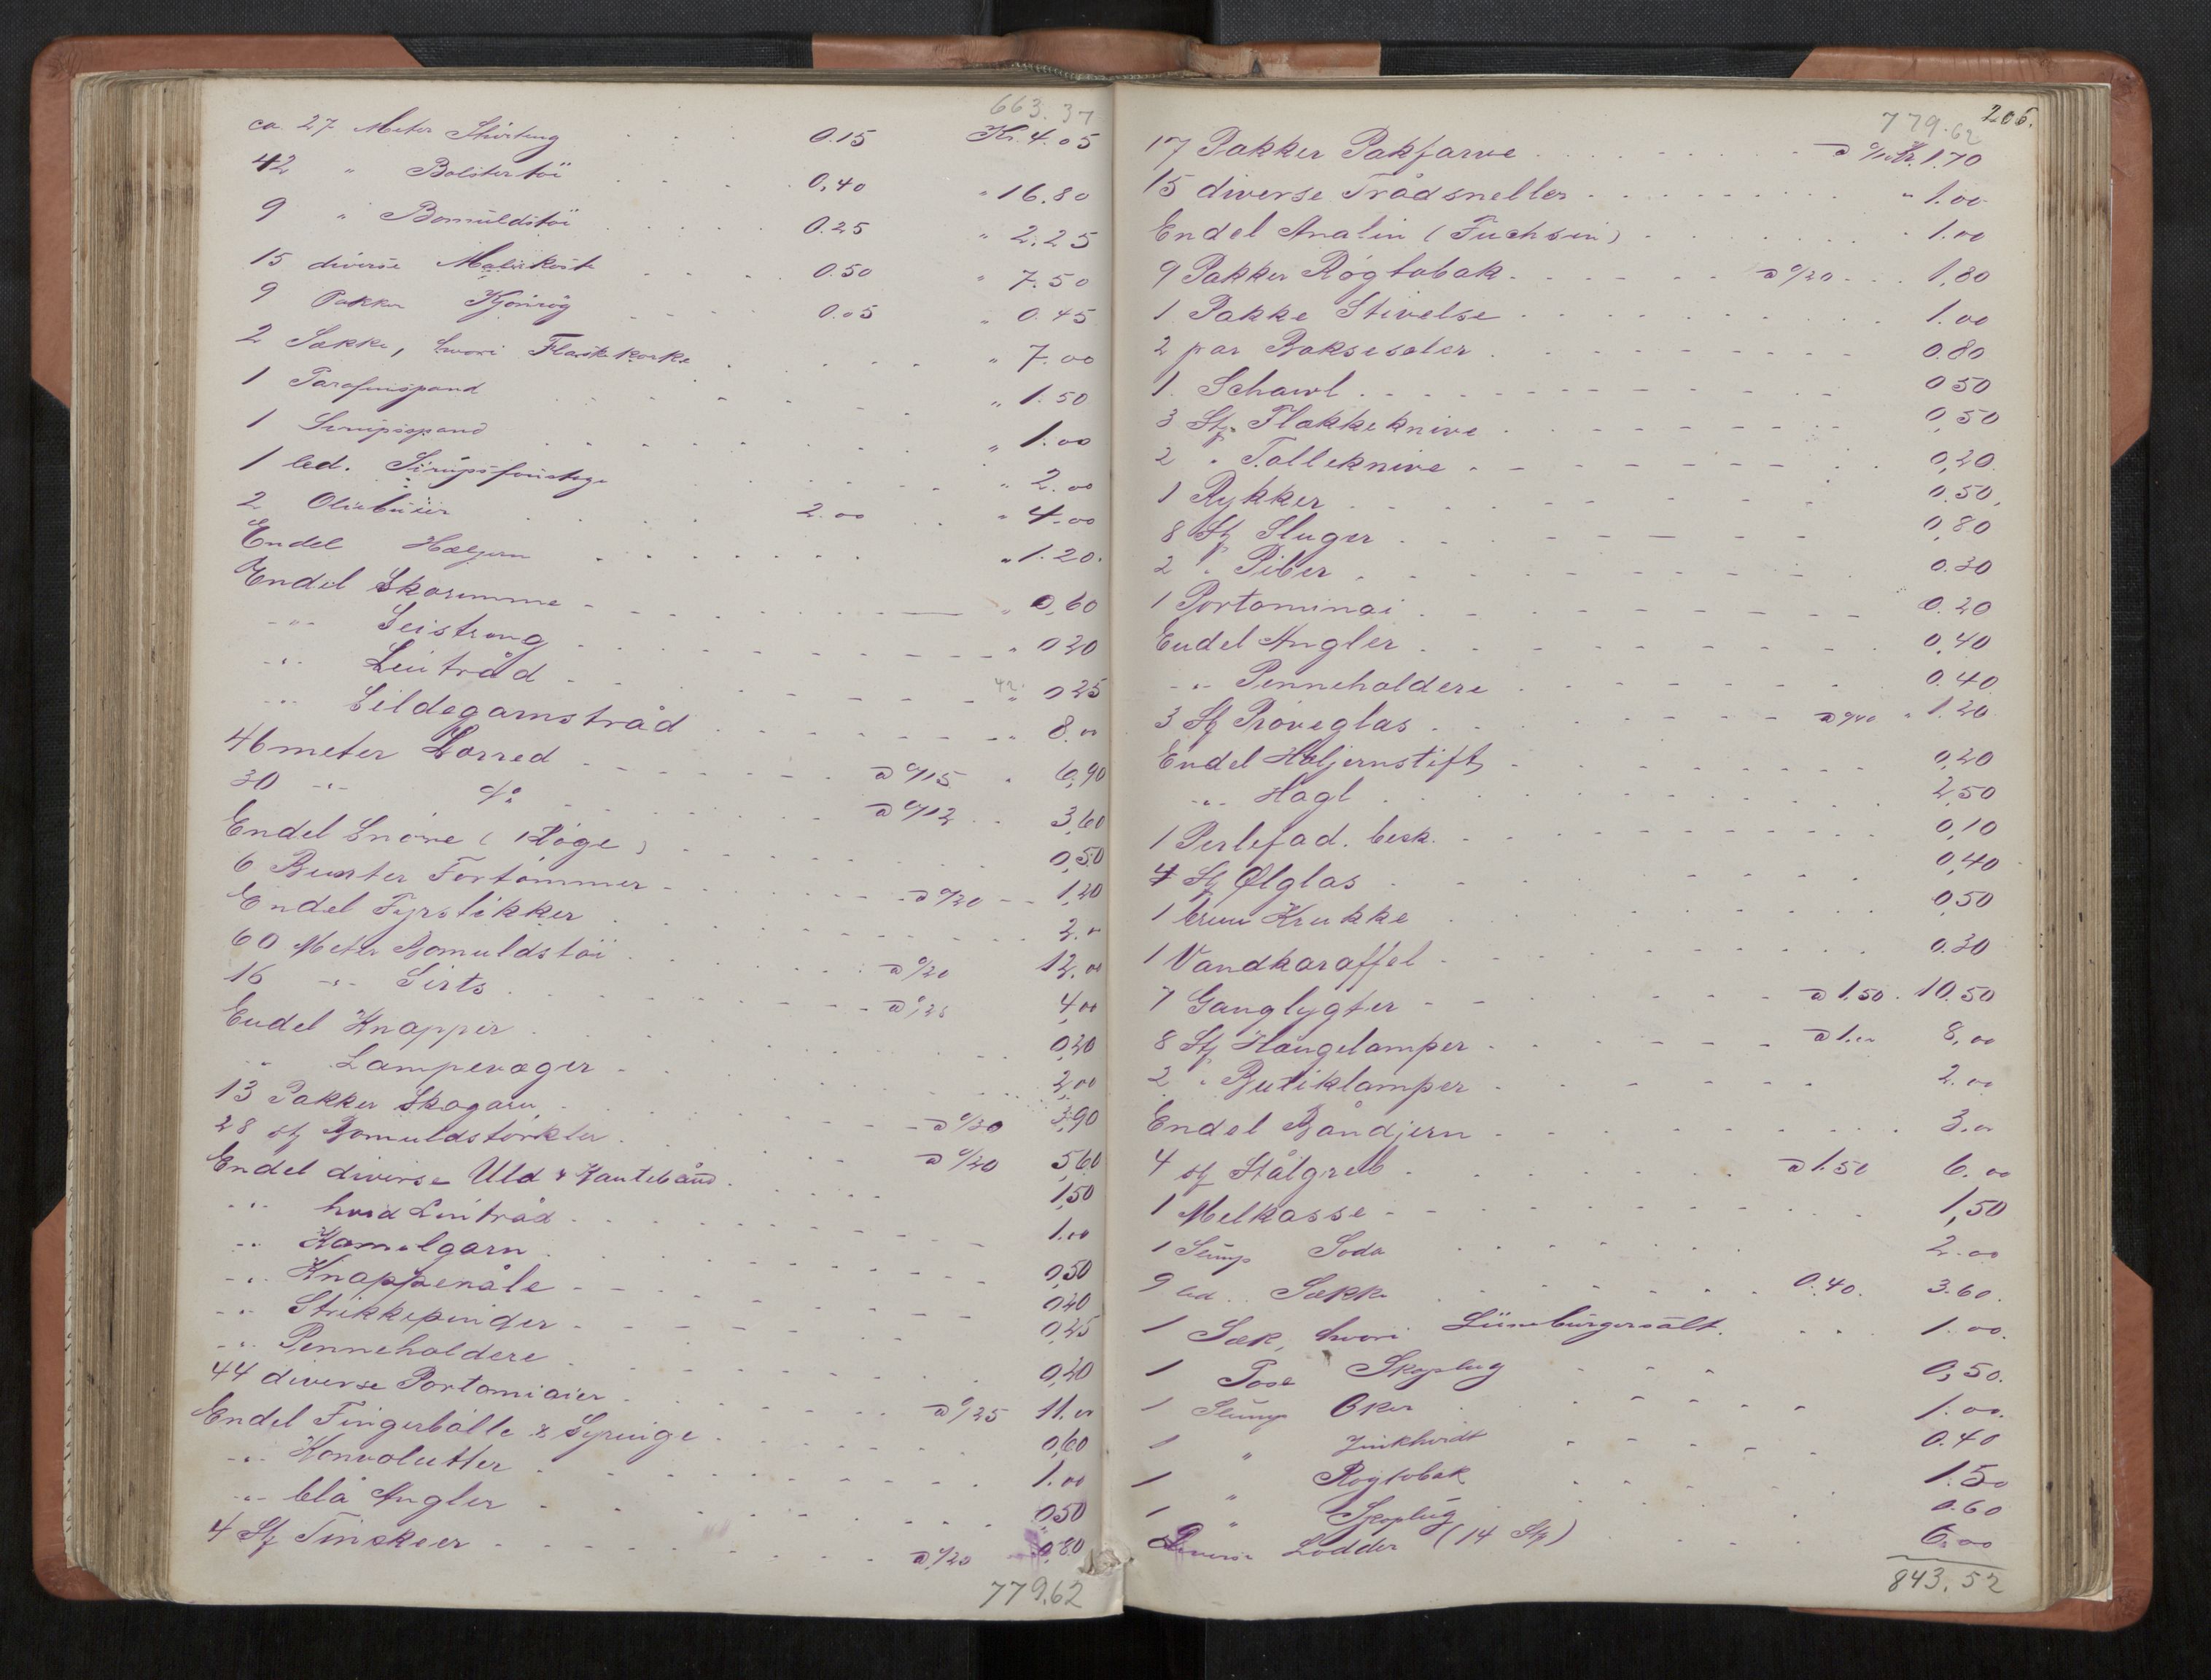 663.37
ca 27 Meter Shirting 0.15 Kr. 4.05
42 " Bolstertöi 0,40 " 16.80
9 " Bomuldstöi 0.25 " 2.25
15 diverse Malerkoste 0.50 " 7.50
9 Pakker Kjönrög 0.05 " 0.45
2 Sække, hvori Flaskekorke " 7.00
1 Parafinspand " 1.50
1 Sirupsspand " 1.00
1 led. Sirupsfoustage " 2.00
2 Oliebuier 2.00 " 4.00
Endel Hæljern " 1.20.
Endel Skoremme " 0,60
-"- Seistreng " 0 20
-"- Lintråd " 0 25
-"- Sildegarnstråd " 8.00
46 meter Lærred a 0/15 " 6,90
30 -"- do a 0/12 3,60
Endel Snöre (1 Höge) 0,50
6 Bunter Fortömmer a 0/20 1,20
Endel Fyrstikker 2.00
60 Meter Bomuldstöi a 0/20 12.00
16 -"- Sirts a 0/25 4,00
Endel Knapper 0,20
-"- Lampevæger 2,00
13 Pakker Skogarn a 0/30 3,90
28 stk Bomuldstörkler a 0/20 5,60
Endel diverse Uld & Kantebånd 1,50
-"- hvid Lintråd 1.00
-"- Kamelgarn 0,50
-"- Knappenåle 0,20
-"- Strikkepinder 0,25
-"- Penneholdere 0,20
44 diverse Portomiaier a 0/25 11.00
Endel Fingerbölle & Syringe 0,60
-"- Konvolutter 1.00
-"- blå Angler 0,50
4 Stk Tinskeer a 0/20 0,80
779.62
206.
779.62
17 Pakker Pakfarve a 0/10 Kr. 1.70
15 diverse Trådsneller " 1.00
Endel Analin (Fuchsin) " 1.00
9 Pakker Røgtobak a 0/20 1,80
1 Pakke Stivelse 1.00
2 par Boksesaler 0.80
1 Schawl 0 50
3 Stk. Flækkeknive 0,50
2 " Tolleknive 0,20
1 Rykker 0.50
8 Stk Sluger 0,80
2 " Piber 0.30
1 Portominai 0.20
Endel Angler 0,40
-"- Penneholdere 0.40
3 Stk Pröveglas a 0/40 " 1.20
Endel Hæljernstift 0,20
-"- Hagl 2,50
1 Perlefad. besk. 0,10
4 Stk Ølglas 0,40
1 brun Krukke 0,50
1 Vandkaraffel 0.30
7 Ganglygter a 1.50 10.50
8 Stk Hængelamper a 1.00 8,00
2 " Butiklamper 2.00
Endel Båndjern 3.00
4 stk Stålgreb a 1.50 6.00
1 Melkasse 1,50
1 Slump Soda 2.00
9 led. Sække 0.40. 3.60.
1 Sæk, hvori Lüneburgersalt. 1.00.
1 Pose Skoplug 0,50.
1 Slump Oker 1.00.
1 " Zinkhvidt 0.40
1 " Rögtobak 1.50
1 " Skoplug 0.60
Diverse Lodder (14 Stk) 6.00
843.52